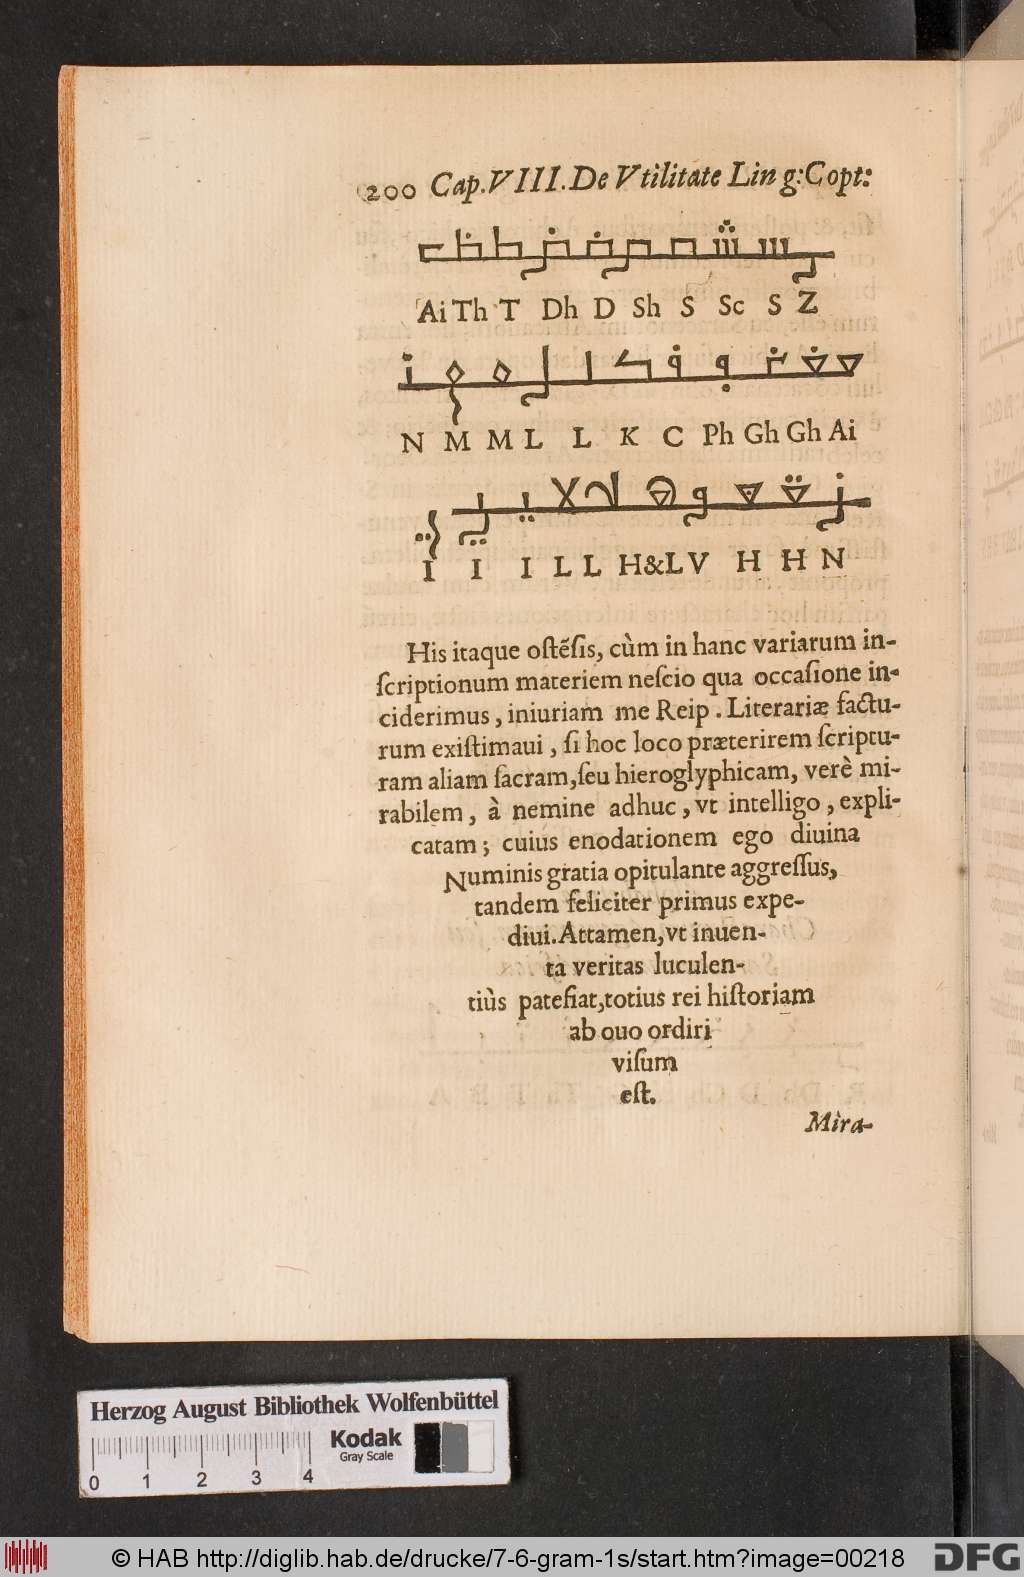 200 Cap.VIII. De Vtilitate Ling:Copt:
Ai Th T Dh D Sh S Sc S Z
N M M L L K C Ph Gh Gh Ai
I I I L L H&L V H H N
His itaque ostẽsis, cùm in hanc variarum in-
scriptionum materiem nescio qua occasione in-
ciderimus, iniuriam me Reip. Literariæ factu-
rum existimaui, si hoc loco præterirem scriptu-
ram aliam sacram, seu hieroglyphicam, verè mi-
rabilem, à nemine adhuc, vt intelligo, expli-
catam; cuius enodationem ego diuina
Numinis gratia opitulante aggressus,
tandem feliciter primus expe-
diui. Attamen, vt inuen-
ta veritas luculen-
tiùs patefiat, totius rei historiam
ab ouo ordiri
visum
est.
Mira-
Herzog August Bibliothek Wolfenbüttel
Kodak
Gray Scale
0 1 2 3 4
© HAB http://diglib.hab.de/drucke/7-6-gram-1s/start.htm?image=00218
DFG